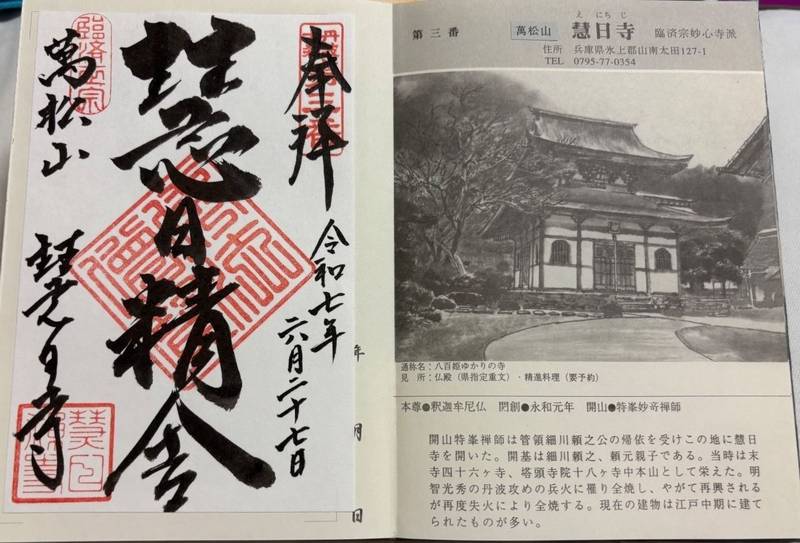 奉拝
令和七年
六月二十七日
慧日精舎
臨済正宗
萬松山
慧日寺
年 月 日
第三番
萬松山
えにちじ
慧日寺
臨済宗妙心寺派
住所 兵庫県氷上郡山南太田127-1
TEL 0795-77-0354
通称名：八百姫ゆかりの寺
見 所：仏殿（県指定重文）・精進料理（要予約）
本尊●釈迦牟尼仏 開創●永和元年 開山●特峯妙奇禅師
開山特峯禅師は管領細川頼之公の帰依を受けこの地に慧日
寺を開いた。開基は細川頼之、頼元親子である。当時は末
寺四十六ヶ寺、塔頭寺院十八ヶ寺中本山として栄えた。明
智光秀の丹波攻めの兵火に罹り全焼し、やがて再興される
が再度失火により全焼する。現在の建物は江戸中期に建て
られたものが多い。